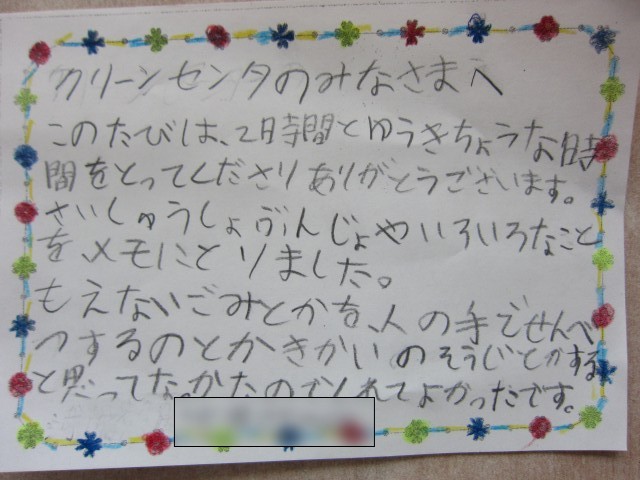 クリーンセンタのみなさまへ
このたびは、2時間とゆうきちょうな時
間をとってくださりありがとうございます。
さいしゅうしょぶんじょやいろいろなこと
をメモにとりました。
もえないごみとかを、人の手でせんべ
つするのとかきかいのそうじとかする
と思ってなかたのでしれてよかったです。